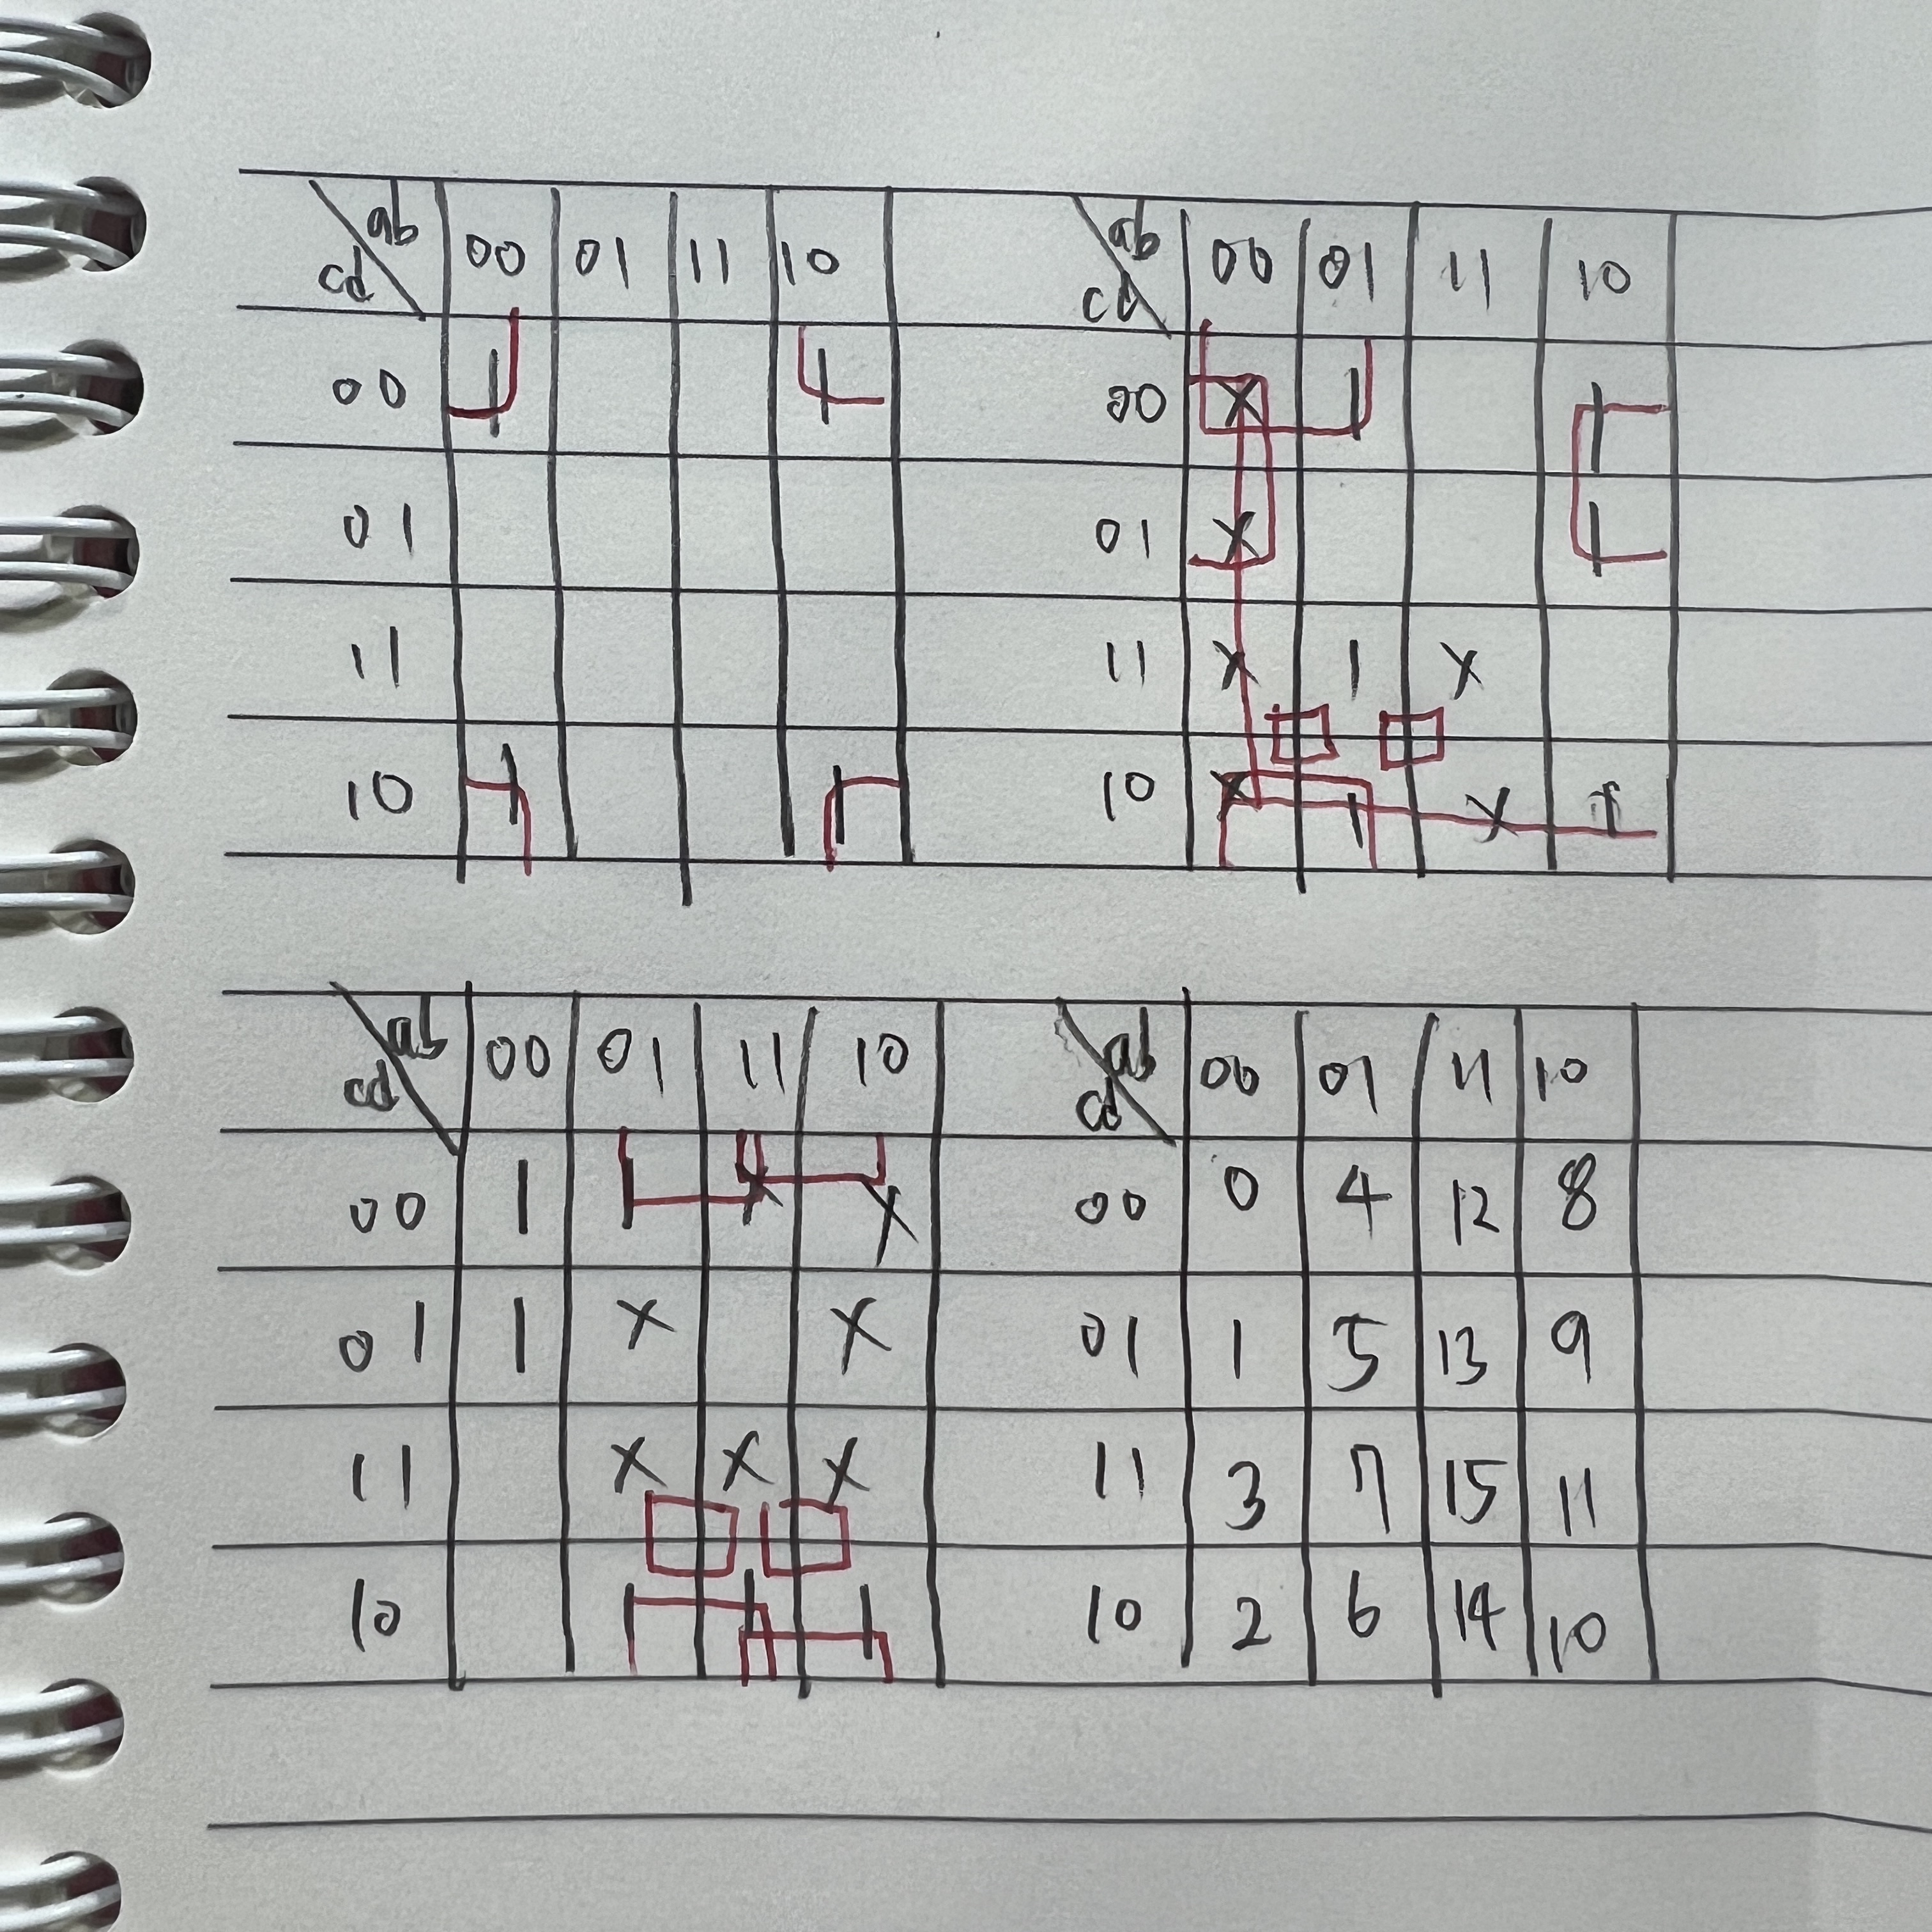 ab 00 01 11 10
cd
00 1 1
01
11
10 1 1
ab 00 01 11 10
cd
00 X 1 1
01 X 1
11 X 1 X
10 X 1 X 1
ab 00 01 11 10
cd
00 1 1 X X
01 1 X X
11 X X X
10 1 1 1
ab 00 01 11 10
cd
00 0 4 12 8
01 1 5 13 9
11 3 7 15 11
10 2 6 14 10